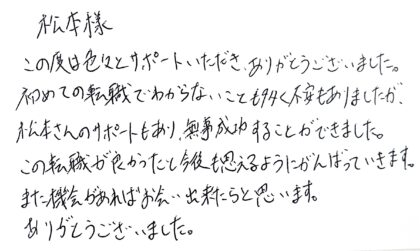 松本様
この度は色々とサポートいただき、ありがとうございました。
初めての転職でわからないことも多く不安もありましたが、
松本さんのサポートもあり、無事成功することができました。
この転職が良かったと今後も思えるようにがんばっていきます。
また機会があればお会い出来たらと思います。
ありがとうございました。